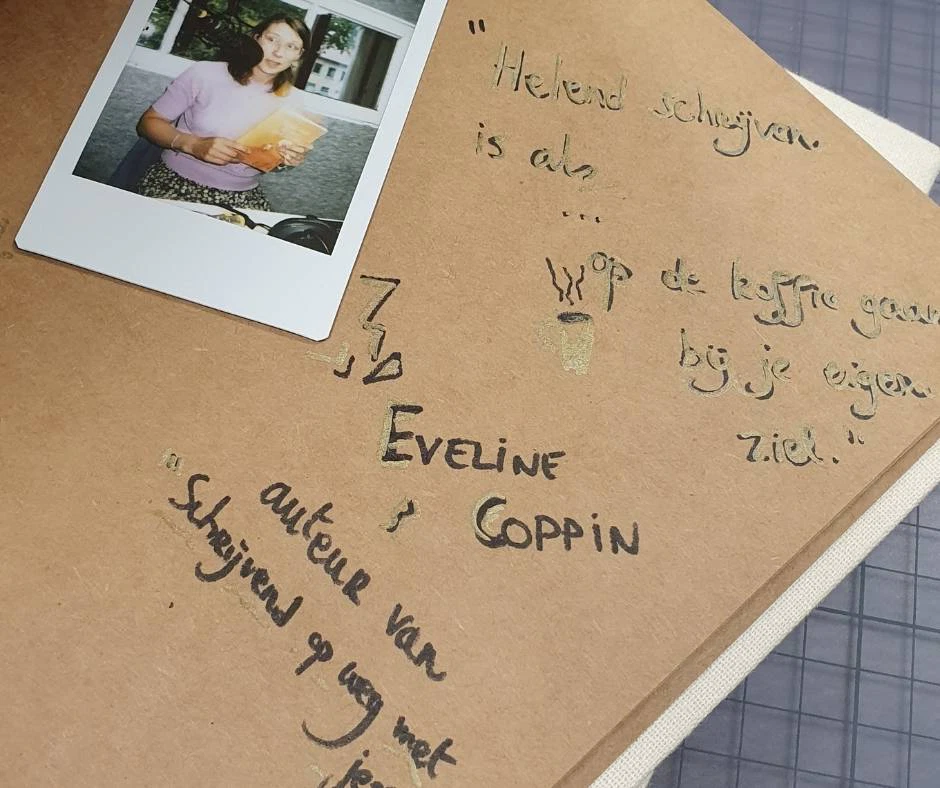 "Helend schrijven
is als
...
op de koffie gaan
bij je eigen
ziel."
EVELINE
COPPIN
auteur van
"Schrijvend op weg met